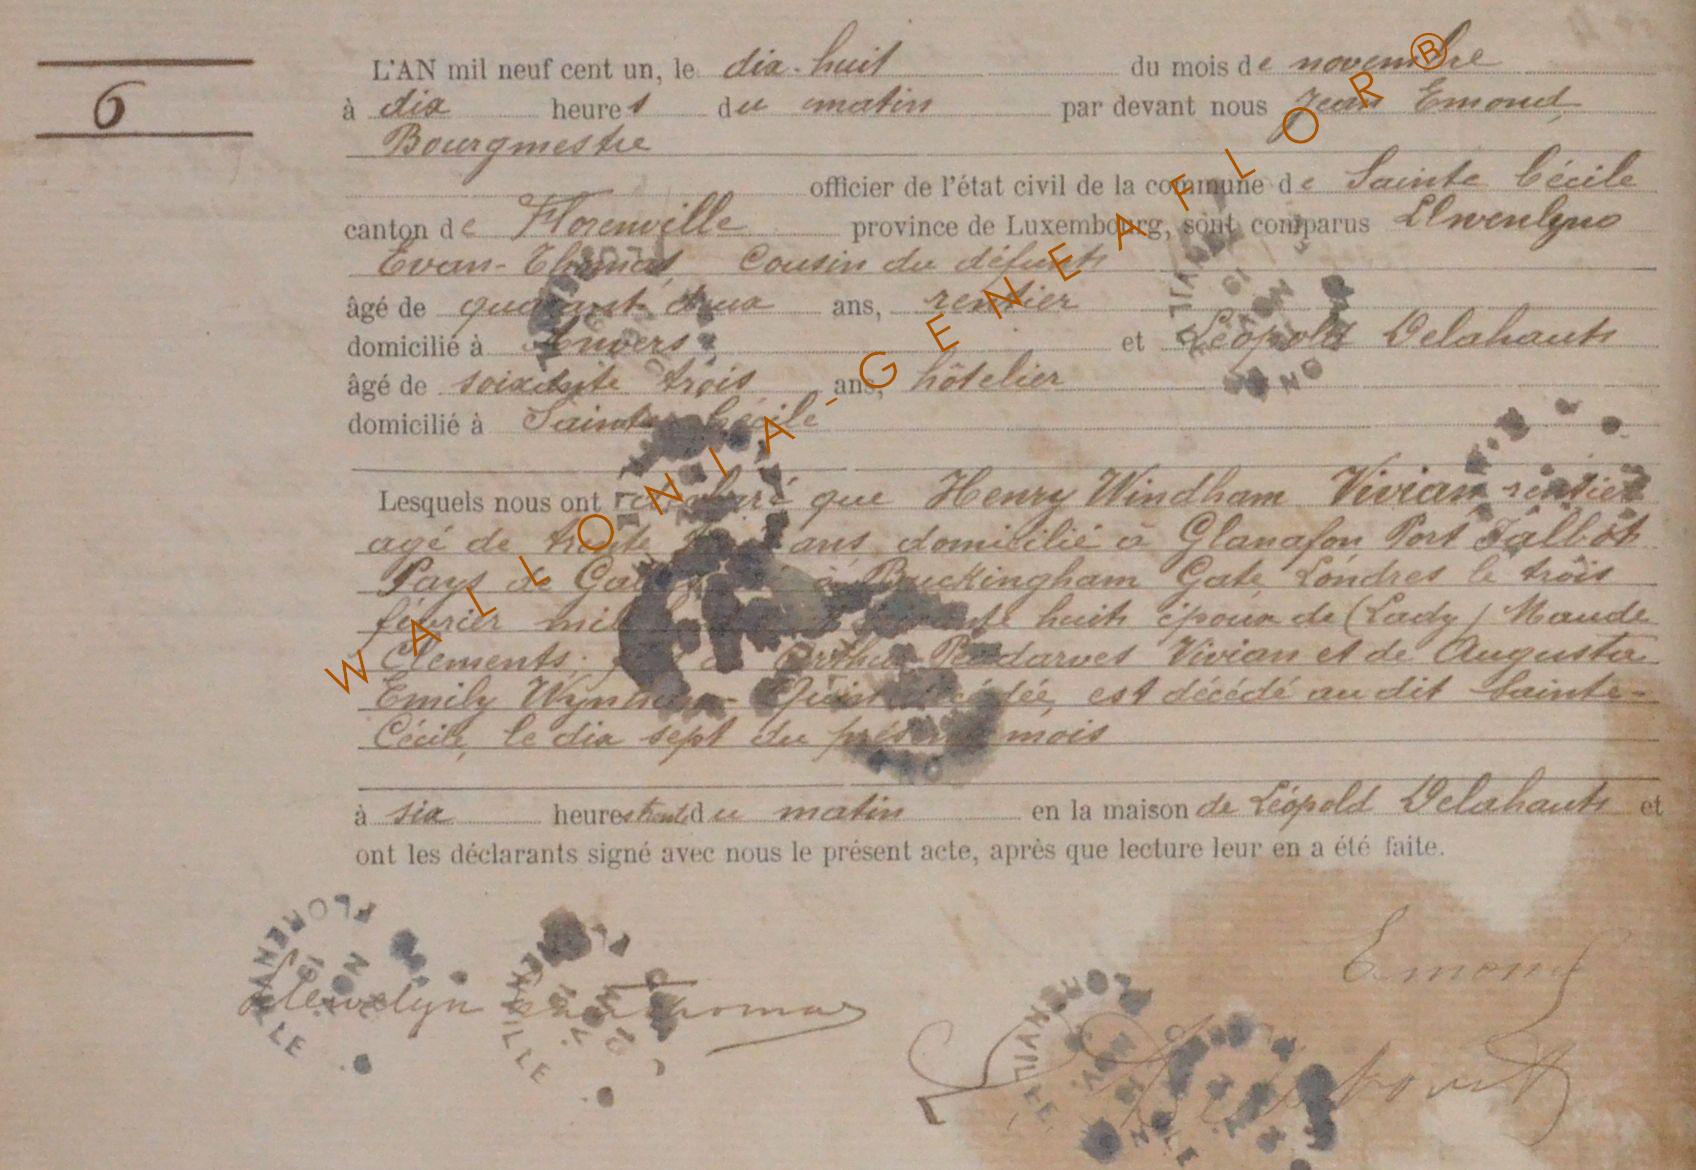 6
L'AN mil neuf cent un, le dix-huit du mois de novembre
à dix heures du matin par devant nous Jean Emond,
Bourgmestre
officier de l'état civil de la commune de Sainte Cécile
canton de Florenville province de Luxembourg, sont comparus Llwenlyno
Evan-Thomas, Cousin du défunt
âgé de quarant-deux ans, rentier
domicilié à Anvers, et Léopold Delahaut
âgé de soixante trois ans, hôtelier
domicilié à Sainte Cécile
Lesquels nous ont déclaré que Henry Windham Vivian rentier
agé de trente ans domicilié à Glanafon Port Talbot
Pays de à Buckingham Gate Londres le trois
février mil huit époux de (Lady) Maude
Clements, Arthur Pendarves Vivian et de Augusta
Emily Quin décédée, est décédé au dit Sainte-
Cécile, le dix sept du présent mois
à six heures trente du matin en la maison de Léopold Delahaut et
ont les déclarants signé avec nous le présent acte, après que lecture leur en a été faite.
Emond
Llewelyn Thomas
FLORENVILLE
WALLONIA-GENEAFLOR®